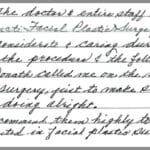 The doctor & entire staff
Facial Plastic Surge
onsiderate & caring dur
the procedure & the foll
onath called me on the n
surgery, just to make s
doing alright.
commend them highly to
ted in facial plastic su